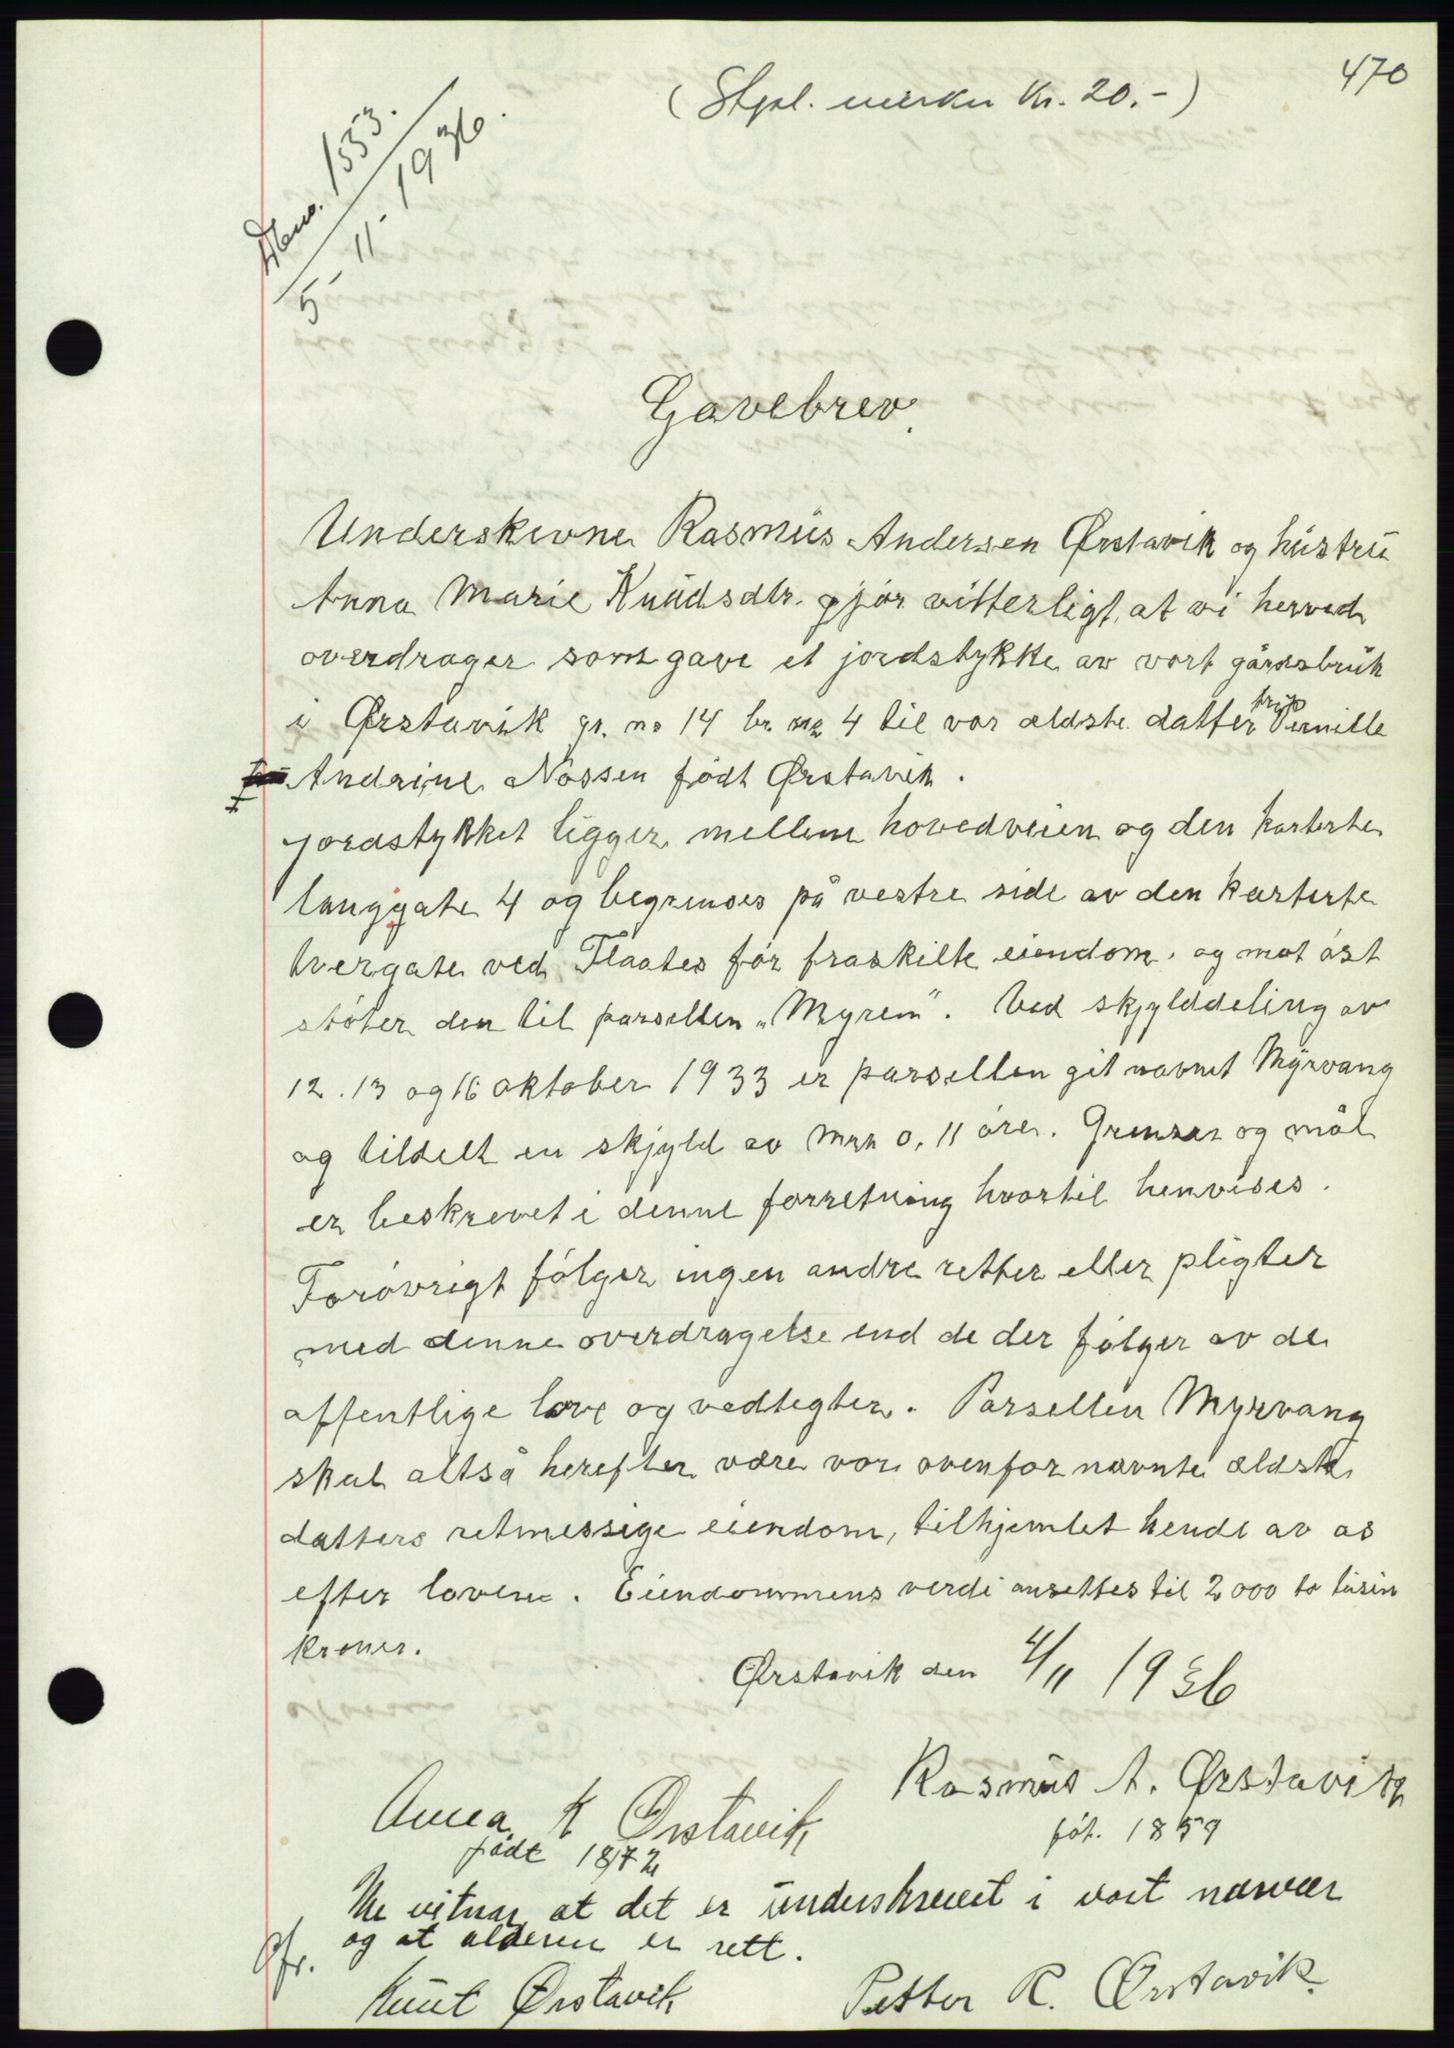 470
(Stpl. merker Kr. 20.-)
Dbno. 1553.
5-11-1936.
Gavebrev.
Underskrevne Rasmus Andersen Ørstavik og hustru
Anna Marie Knudsdtr. gjør vitterligt, at vi herved
overdrager som gave et jordstykke av vort gårdsbruk
i Ørstavik gr. no 14 br. no 4 til vor ældste datter fru Pernille
Andrine Nossen født Ørstavik.
Jordstykket ligger mellem hovedveien og den karterte
langgate 4 og begrenses på vestre side av den karterte
tvergate ved Flaates før fraskilte eiendom, og mot øst
støter den til parsellen „Myren". Ved skjylddeling av
12. 13 og 16 oktober 1933 er parsellen git navnet Myrvang
og tildelt en skjyld av Mrk 0,11 øre. Grenser og mål
er beskrevet i denne forretning hvortil henvises.
Forøvrigt følger ingen andre retter eller pligter
med denne overdragelse end de der følger av de
offentlige love og vedtegter. Parsellen Myrvang
skal altså herefter være vor ovenfor nævnte ældste
datters retmessige eiendom, tilhjemlet hende av os
efter lovene. Eiendommens verdi ansettes til 2000 to tusin
kroner.
Ørstavik den 4/11 1936
Rasmus A. Ørstavik
føt. 1859
Anna K Ørstavik
født 1872
Me vitnar at det er underskrevet i vort nærvær
og at alderen er rett.
Gfr.
Knut Ørstavik
Petter R. Ørstavik